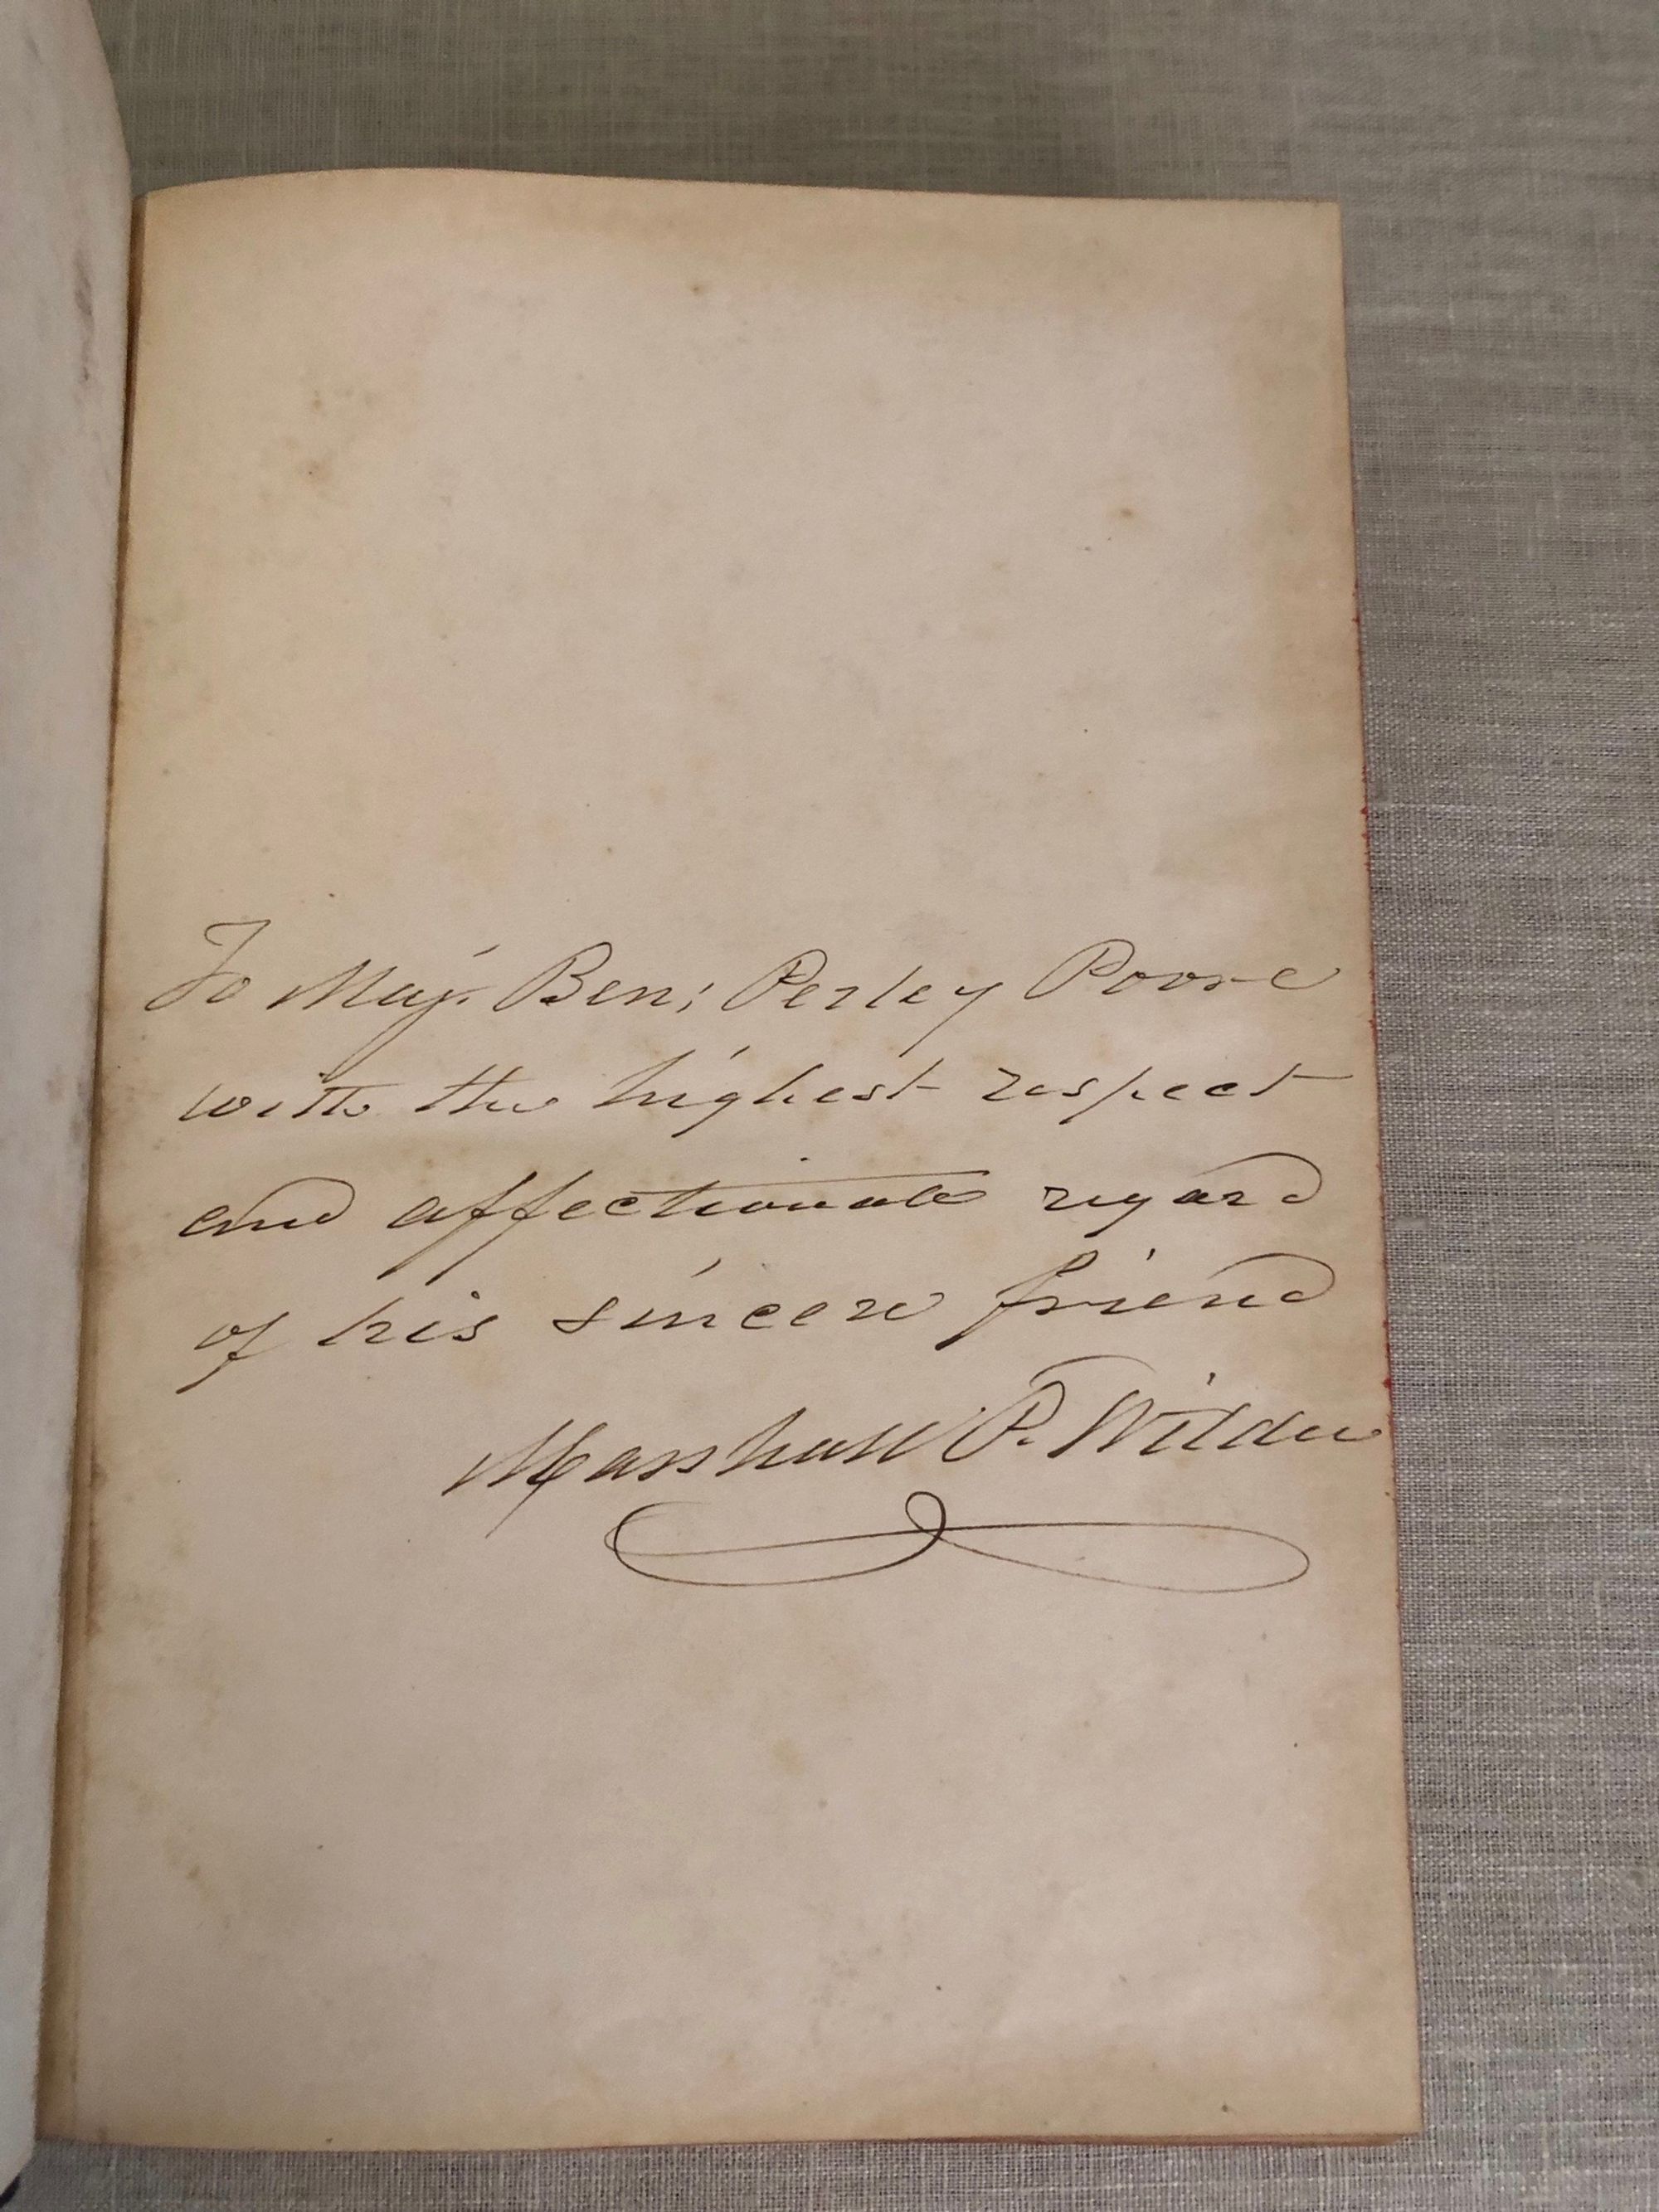 To Maj. Ben: Perley Poore
with the highest respect
and affectionate regard
of his sincere friend
Marshall P. Wilder